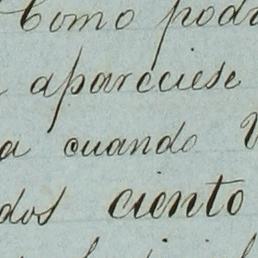 Como podr
apareciese
a cuando V
dos ciento